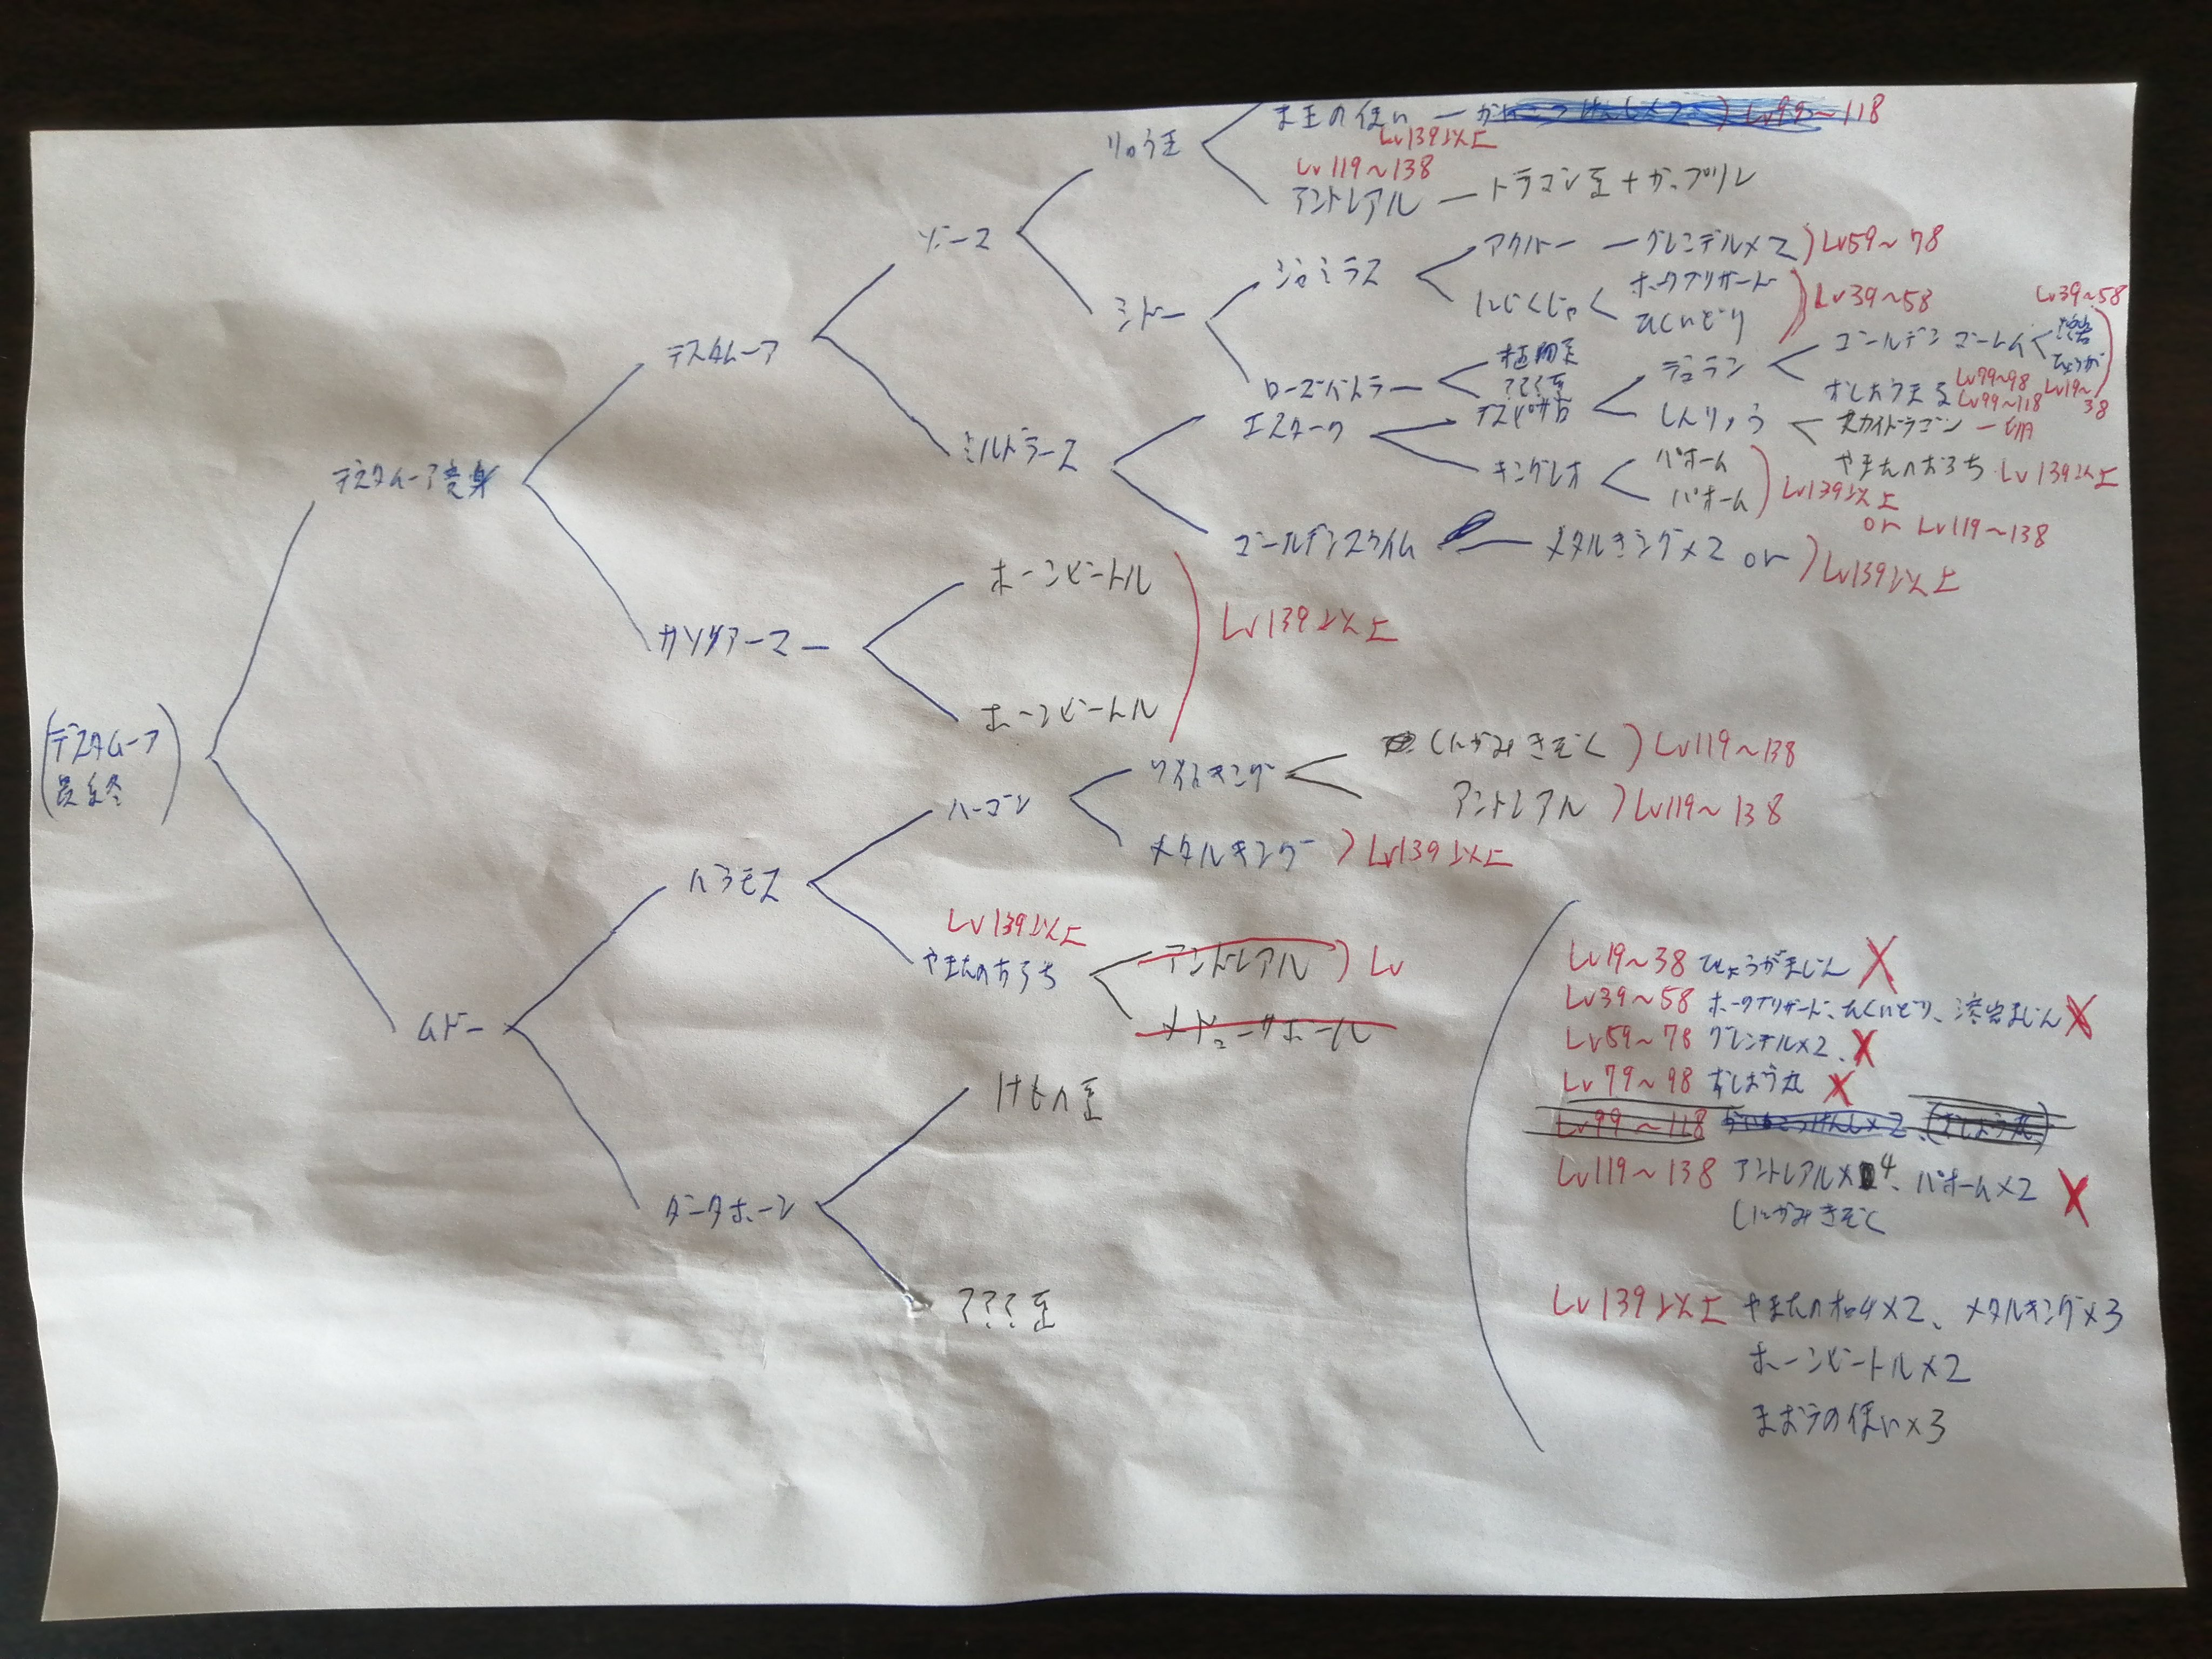 ま王の使い ー
Lv99~118
Lv139以上
りゅう王
Lv119~138
アンドレアル ー ドラゴン系 + ガップリン
ゾーマ
アクバー ー グレンデル×2 ) Lv59~78
ジャミラス
ホークブリザード
にじくじゃ
ひくいどり
Lv39~58
シドー
Lv39~58
ゴールデンゴーレム
溶岩
ひょうが
植物系
デュラン
ローズバトラー
???系
おしょう丸
Lv79~98
Lv99~118
Lv19~38
デスタムーア
エスターク
デスピサロ
しんりゅう
スカイドラゴン
やまたのおろち Lv139以上
ミルドラース
キングレオ
バホーム
バホーム
Lv139以上
or Lv119~138
デスタムーア変身
ゴールデンスライム ー メタルキング×2 or ) Lv139以上
ホーンビートル
Lv139以上
ガンダアーマー
ホーンビートル
(デスタムーア
最終)
しにがみきぞく ) Lv119~138
ワイトキング
アンドレアル ) Lv119~138
ハーゴン
メタルキング ) Lv139以上
バラモス
Lv139以上
やまたのおろち
アンドレアル ) Lv
メドューサボール
ムドー
けもの系
ダークホーン
???系
Lv19~38 ひょうがまじん X
Lv39~58 ホークブリザード、ひくいどり、溶岩まじん X
Lv59~78 グレンデル×2、X
Lv79~98 おしょう丸 X
Lv99~118 がいこつけんし×2、(おしょう丸)
Lv119~138 アンドレアル×4、バホーム×2 X
しにがみきぞく
Lv139以上 やまたのオロチ×2、メタルキング×3
ホーンビートル×2
まおうの使い×3